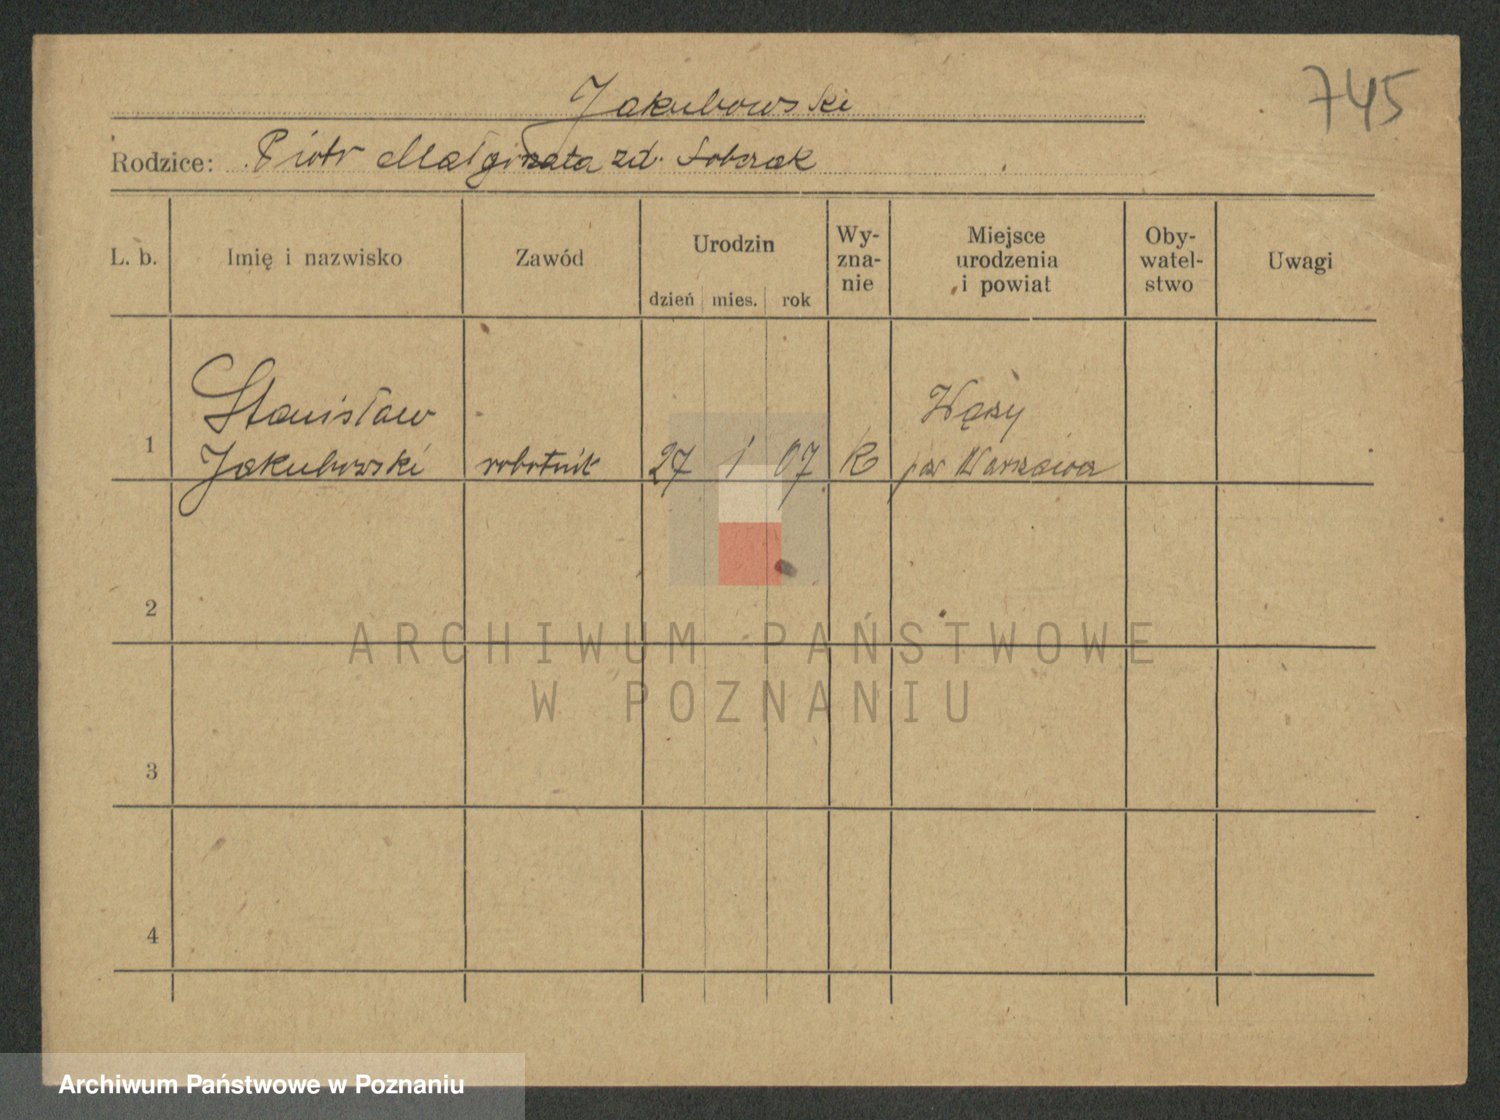 745
Jakubowski
Rodzice: Piotr Małgorzata zd. Sobczak
L. b.
Imię i nazwisko
Zawód
Urodzin
dzień mies. rok
Wy-
zna-
nie
Miejsce
urodzenia
i powiat
Oby-
watel-
stwo
Uwagi
1
Stanisław
Jakubowski
robotnik
27 1 07
R
Warszawa
2
3
4
ARCHIWUM PAŃSTWOWE
W POZNANIU
Archiwum Państwowe w Poznaniu